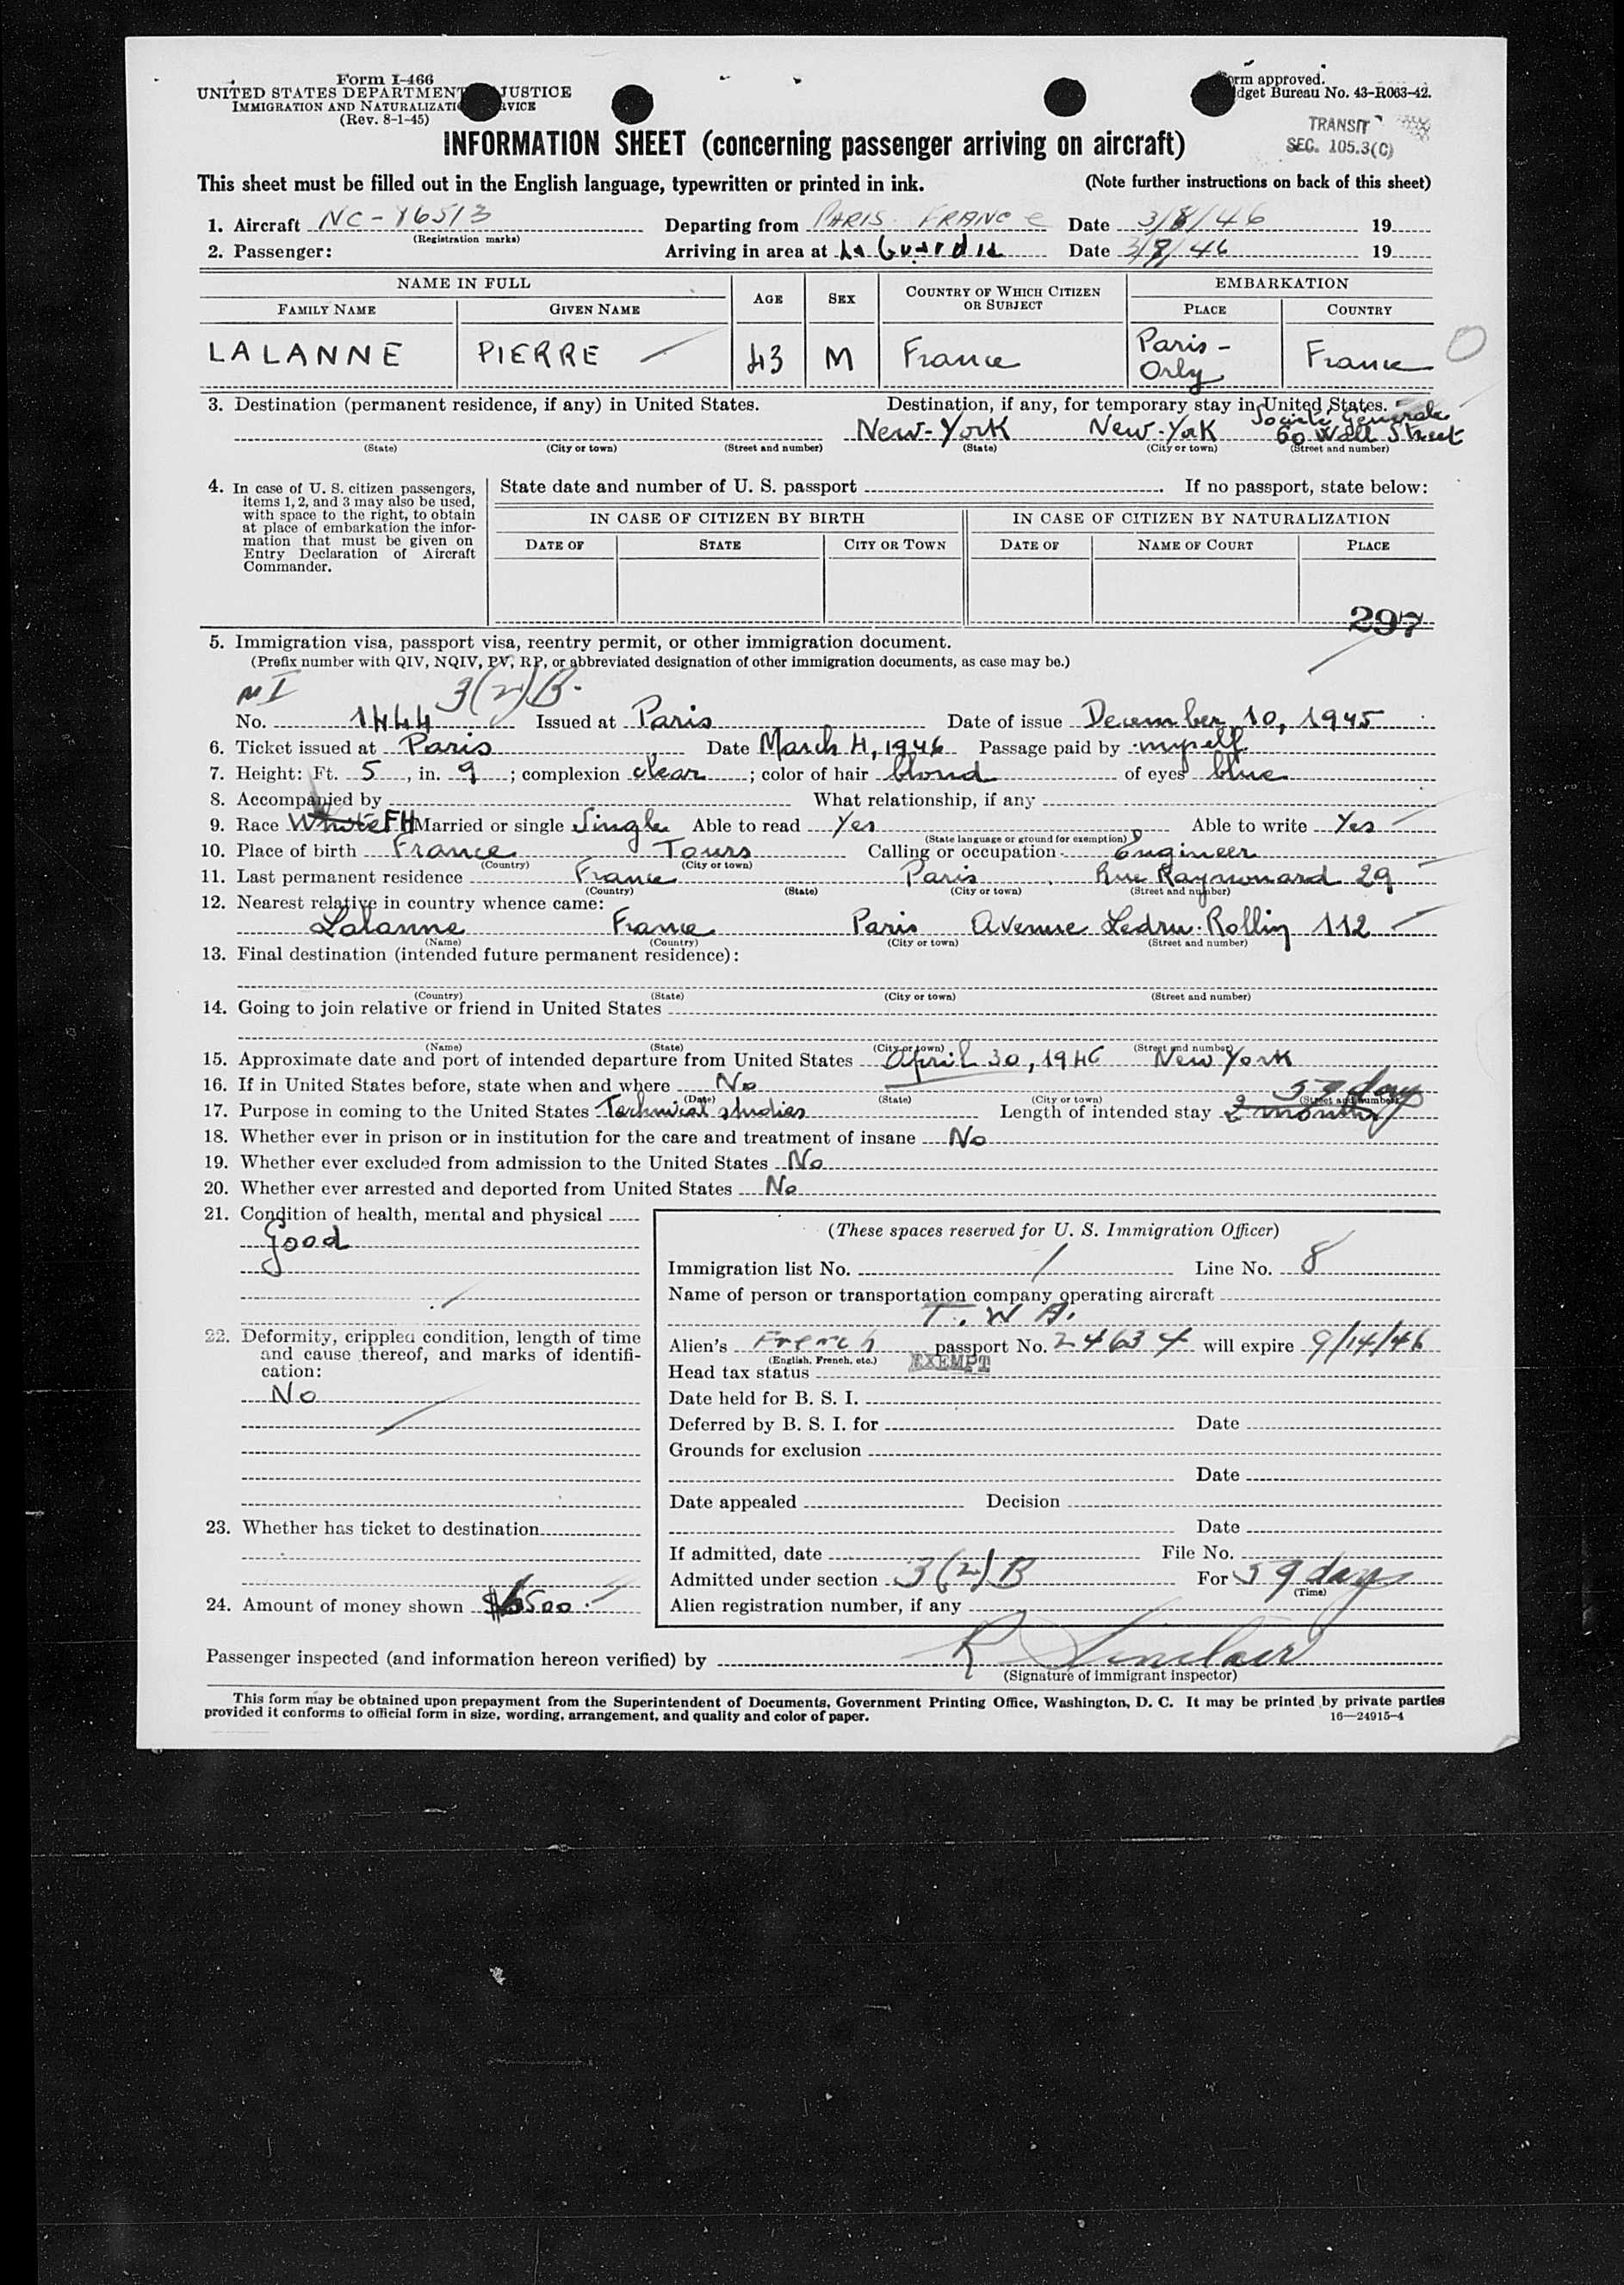 Form I-466
UNITED STATES DEPARTMENT JUSTICE
IMMIGRATION AND NATURALIZATI RVICE
(Rev. 8-1-45)
orm approved.
dget Bureau No. 43-R063-42.
TRANSIT
SEC. 105.3(C)
INFORMATION SHEET (concerning passenger arriving on aircraft)
This sheet must be filled out in the English language, typewritten or printed in ink. (Note further instructions on back of this sheet)
1. Aircraft NC-86513 Departing from PARIS FRANCE Date 3/8/46 19
(Registration marks)
2. Passenger: Arriving in area at La Guardia Date 3/9/46 19
NAME IN FULL AGE SEX COUNTRY OF WHICH CITIZEN OR SUBJECT EMBARKATION
FAMILY NAME GIVEN NAME PLACE COUNTRY
LALANNE PIERRE 43 M France Paris - Orly France
3. Destination (permanent residence, if any) in United States. Destination, if any, for temporary stay in United States.
Société Générale
New-York New-York 60 Wall Street
(State) (City or town) (Street and number) (State) (City or town) (Street and number)
4. In case of U. S. citizen passengers, items 1, 2, and 3 may also be used, with space to the right, to obtain at place of embarkation the information that must be given on Entry Declaration of Aircraft Commander.
State date and number of U. S. passport . If no passport, state below:
IN CASE OF CITIZEN BY BIRTH IN CASE OF CITIZEN BY NATURALIZATION
DATE OF STATE CITY OR TOWN DATE OF NAME OF COURT PLACE
297
5. Immigration visa, passport visa, reentry permit, or other immigration document.
(Prefix number with QIV, NQIV, PV, RP, or abbreviated designation of other immigration documents, as case may be.)
3(2)B.
No. 1444 Issued at Paris Date of issue December 10, 1945
6. Ticket issued at Paris Date March 4, 1946 Passage paid by myself
7. Height: Ft. 5, in. 9; complexion clear; color of hair blond of eyes blue
8. Accompanied by What relationship, if any
9. Race White FH Married or single Single Able to read Yes Able to write Yes
(State language or ground for exemption)
10. Place of birth France Tours Calling or occupation Engineer
(Country) (City or town)
11. Last permanent residence France Paris Rue Raynouard 29
(Country) (State) (City or town) (Street and number)
12. Nearest relative in country whence came:
Lalanne France Paris Avenue Ledru-Rollin 112
(Name) (Country) (City or town) (Street and number)
13. Final destination (intended future permanent residence):
(Country) (State) (City or town) (Street and number)
14. Going to join relative or friend in United States
(Name) (State) (City or town) (Street and number)
15. Approximate date and port of intended departure from United States April 30, 1946 New York
16. If in United States before, state when and where No
(Date) (State) (City or town) (Street and number)
59 days
17. Purpose in coming to the United States Technical studies Length of intended stay 2 months
18. Whether ever in prison or in institution for the care and treatment of insane No
19. Whether ever excluded from admission to the United States No
20. Whether ever arrested and deported from United States No
21. Condition of health, mental and physical
Good
22. Deformity, crippled condition, length of time and cause thereof, and marks of identification:
No
23. Whether has ticket to destination
24. Amount of money shown $500.
(These spaces reserved for U. S. Immigration Officer)
Immigration list No. 1 Line No. 8
Name of person or transportation company operating aircraft
T. W A.
Alien's French passport No. 24634 will expire 9/14/46
(English, French, etc.)
Head tax status EXEMPT
Date held for B. S. I.
Deferred by B. S. I. for Date
Grounds for exclusion
Date
Date appealed Decision
Date
If admitted, date File No.
Admitted under section 3(2)B For 59 days
(Time)
Alien registration number, if any
Passenger inspected (and information hereon verified) by R Sinclair
(Signature of immigrant inspector)
This form may be obtained upon prepayment from the Superintendent of Documents, Government Printing Office, Washington, D. C. It may be printed by private parties
provided it conforms to official form in size, wording, arrangement, and quality and color of paper. 16—24915-4